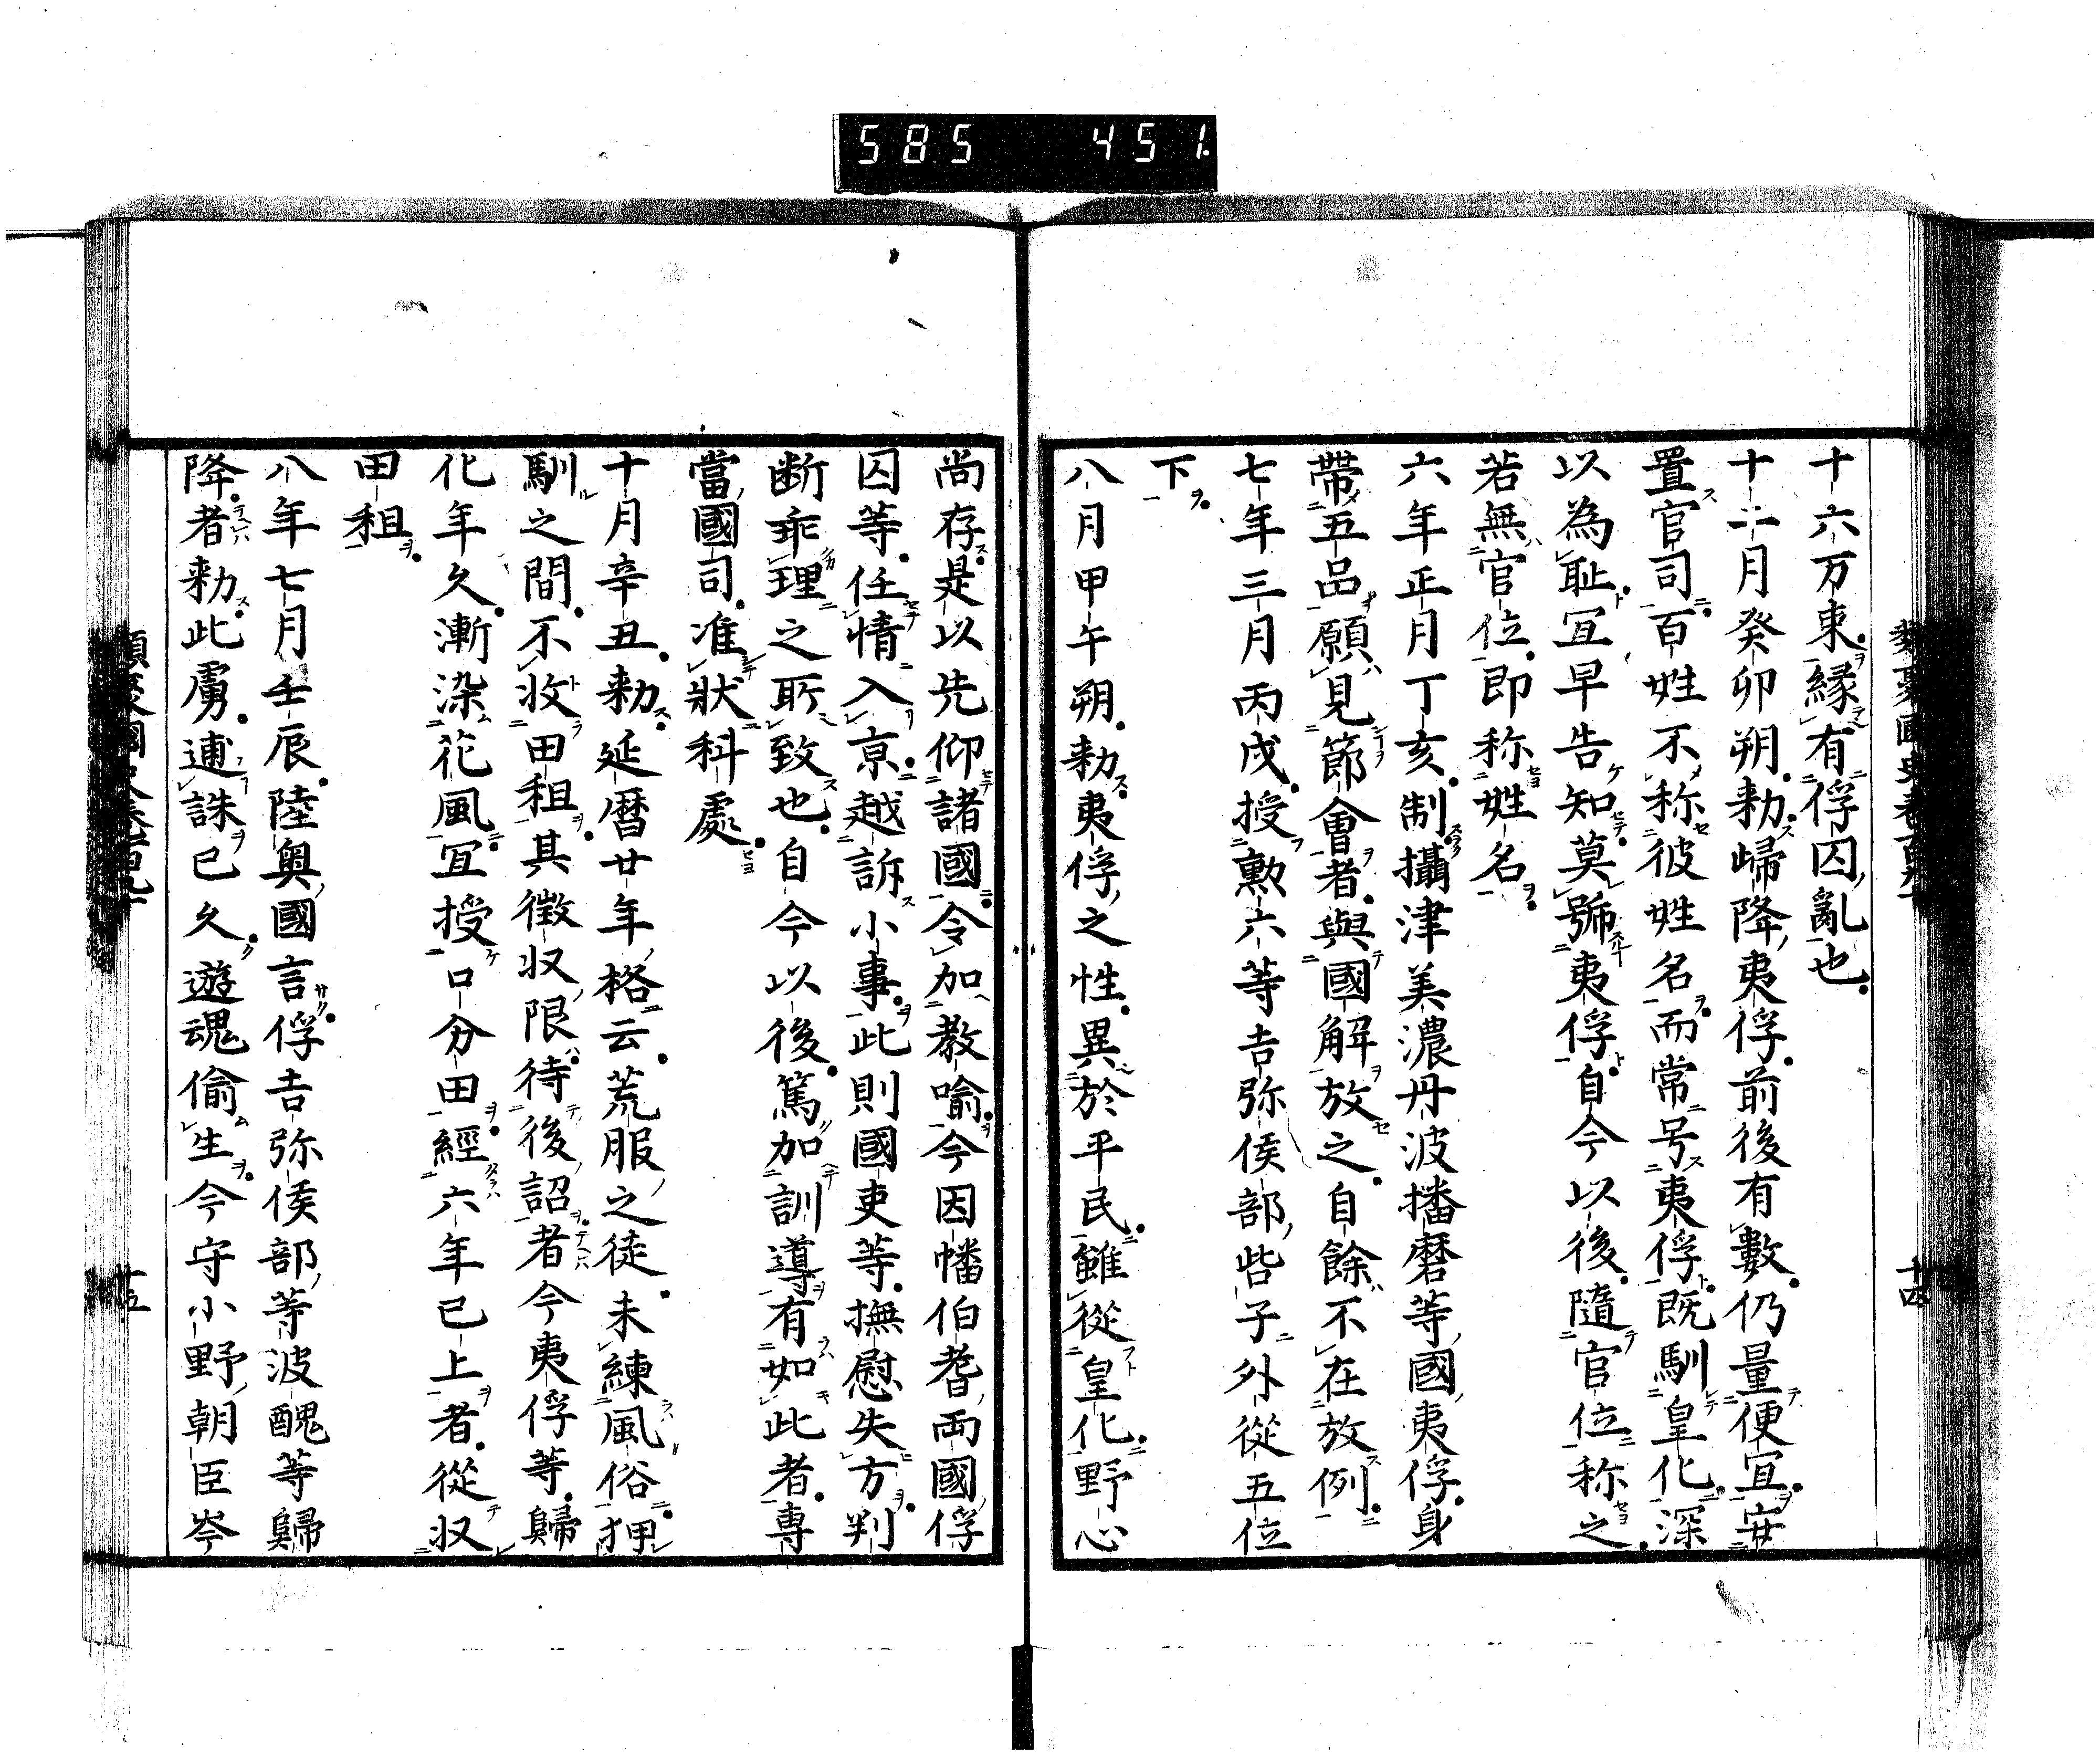 585 451
十六万束縁有俘囚亂也
十二月癸卯朔勅歸降夷俘前後有數仍量便宜安
置官司百姓不称彼姓名而常号夷俘既馴皇化深
以為耻宜早告知莫號夷俘自今以後隨官位称之
若無官位即称姓名
六年正月丁亥制攝津美濃丹波播磨等國夷俘身
帶五品願見節會者與國解放之自餘不在放例
七年三月丙戌授勲六等吉弥侯部呰子外從五位
下
八月甲午朔勅夷俘之性異於平民雖從皇化野心
尚存是以先仰諸國令加教喻今因幡伯耆両國俘
囚等任情入京越訴小事此則國吏等撫慰失方判
断乖理之所致也自今以後篤加訓導有如此者専
當國司准狀科處
十月辛丑勅延暦廿年格云荒服之徒未練風俗狎
馴之間不收田租其徴収限待後詔者今夷俘等歸
化年久漸染花風宜授口分田經六年已上者從収
田租
八年七月壬辰陸奥國言俘吉弥侯部等波醜等歸
降者勅此虜逋誅已久遊魂偷生今守小野朝臣岑